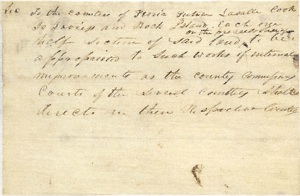 To the counties of Peoria Putnam Lasalle Cook
Jo Daviess and Rock Island. Each one
half Section of Said land to be
appropriated to Such works of internal
improvements as the county Commissioners
Courts of the Several counties Shall
directs in their Respective Counties